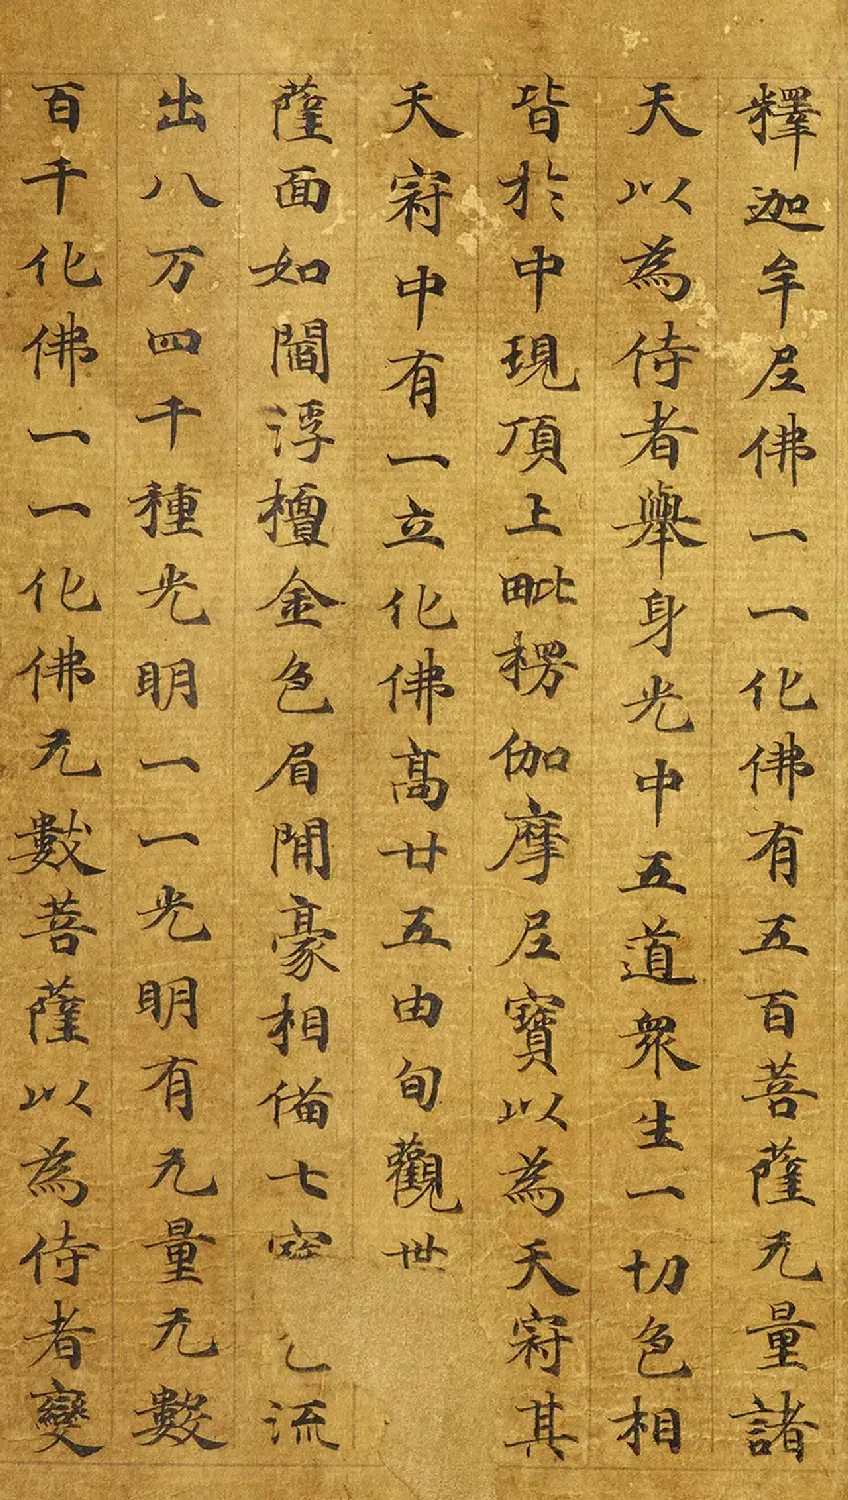 釋迦牟尼佛一一化佛有五百菩薩无量諸
天以為侍者舉身光中五道衆生一切色相
皆於中現頂上毗楞伽摩尼寶以為天冠其
天冠中有一立化佛高廿五由旬觀世
薩面如閻浮檀金色眉間豪相俻七流
出八万四千種光明一一光明有无量无數
百千化佛一一化佛无數菩薩以為侍者變